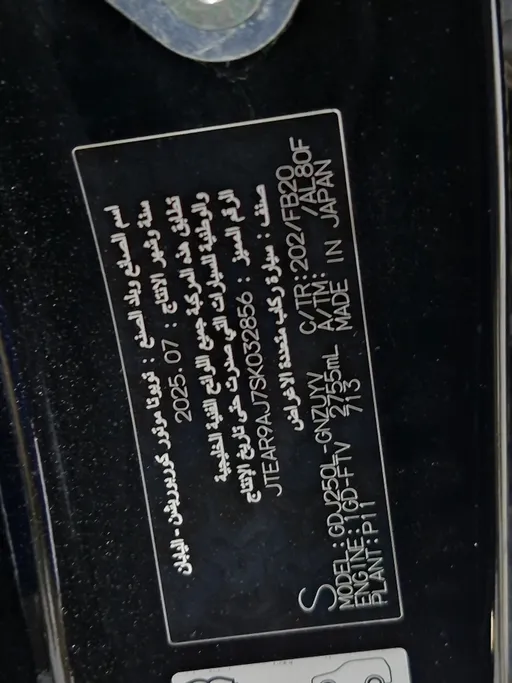 اسم المصنع وبلد الصنع : تويوتا موتور كوربوريشن - اليابان
سنة وشهر الإنتاج : 2025.07
تطابق هذه المركبة جميع اللوائح الفنية الخليجية
والوطنية للسيارات التي صدرت حتى تاريخ الإنتاج
الرقم المميز : JTEAR9AJ7SK032856
صنف : سيارة ركاب متعددة الأغراض
S
MODEL:GDJ250L-GNZUYV C/TR:202/FB20
ENGINE:1GD-FTV 2755mL A/TM: /AL80F
PLANT:P11 713 MADE IN JAPAN